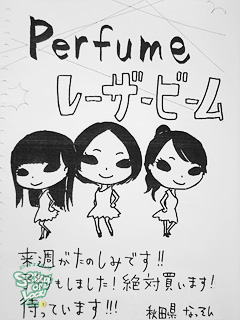 Perfume
レーザービーム
来週がたのしみです!!
もしました!絶対買います!
待っています!!!
秋田県